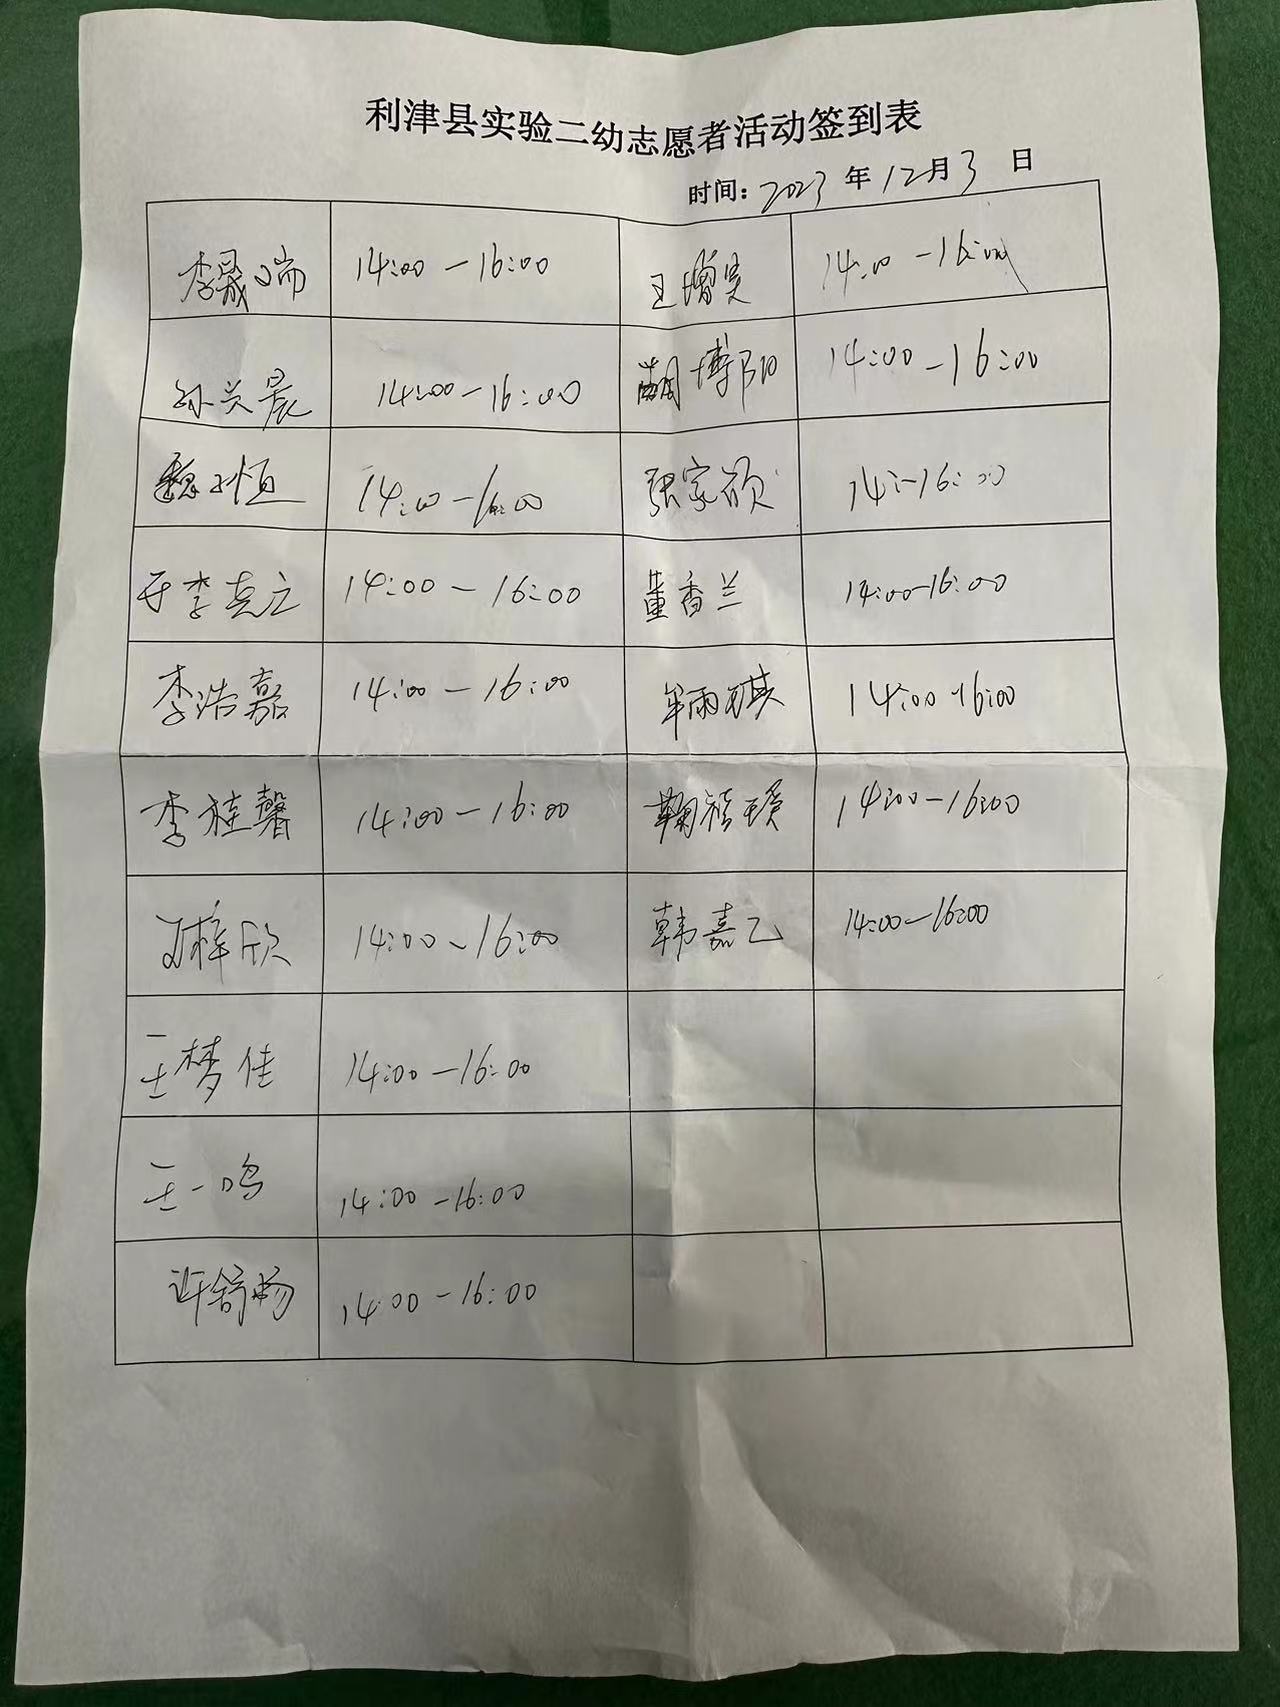 利津县实验二幼志愿者活动签到表
时间: 2023 年 12月 3 日
李晟瑞 14:00-16:00 王增昊 14:00-16:00
孙兴晨 14:00-16:00 博阳 14:00-16:00
魏子恒 14:00-16:00 张家颀 14:-16:00
于李克之 14:00-16:00 董香兰 14:00-16:00
李浩嘉 14:00-16:00 牟雨琪 14:00-16:00
李桂馨 14:00-16:00 鞠禧瑛 14:00-16:00
梓欣 14:00-16:00 韩嘉乙 14:00-16:00
王梦佳 14:00-16:00
王一鸣 14:00-16:00
许舒畅 14:00-16:00